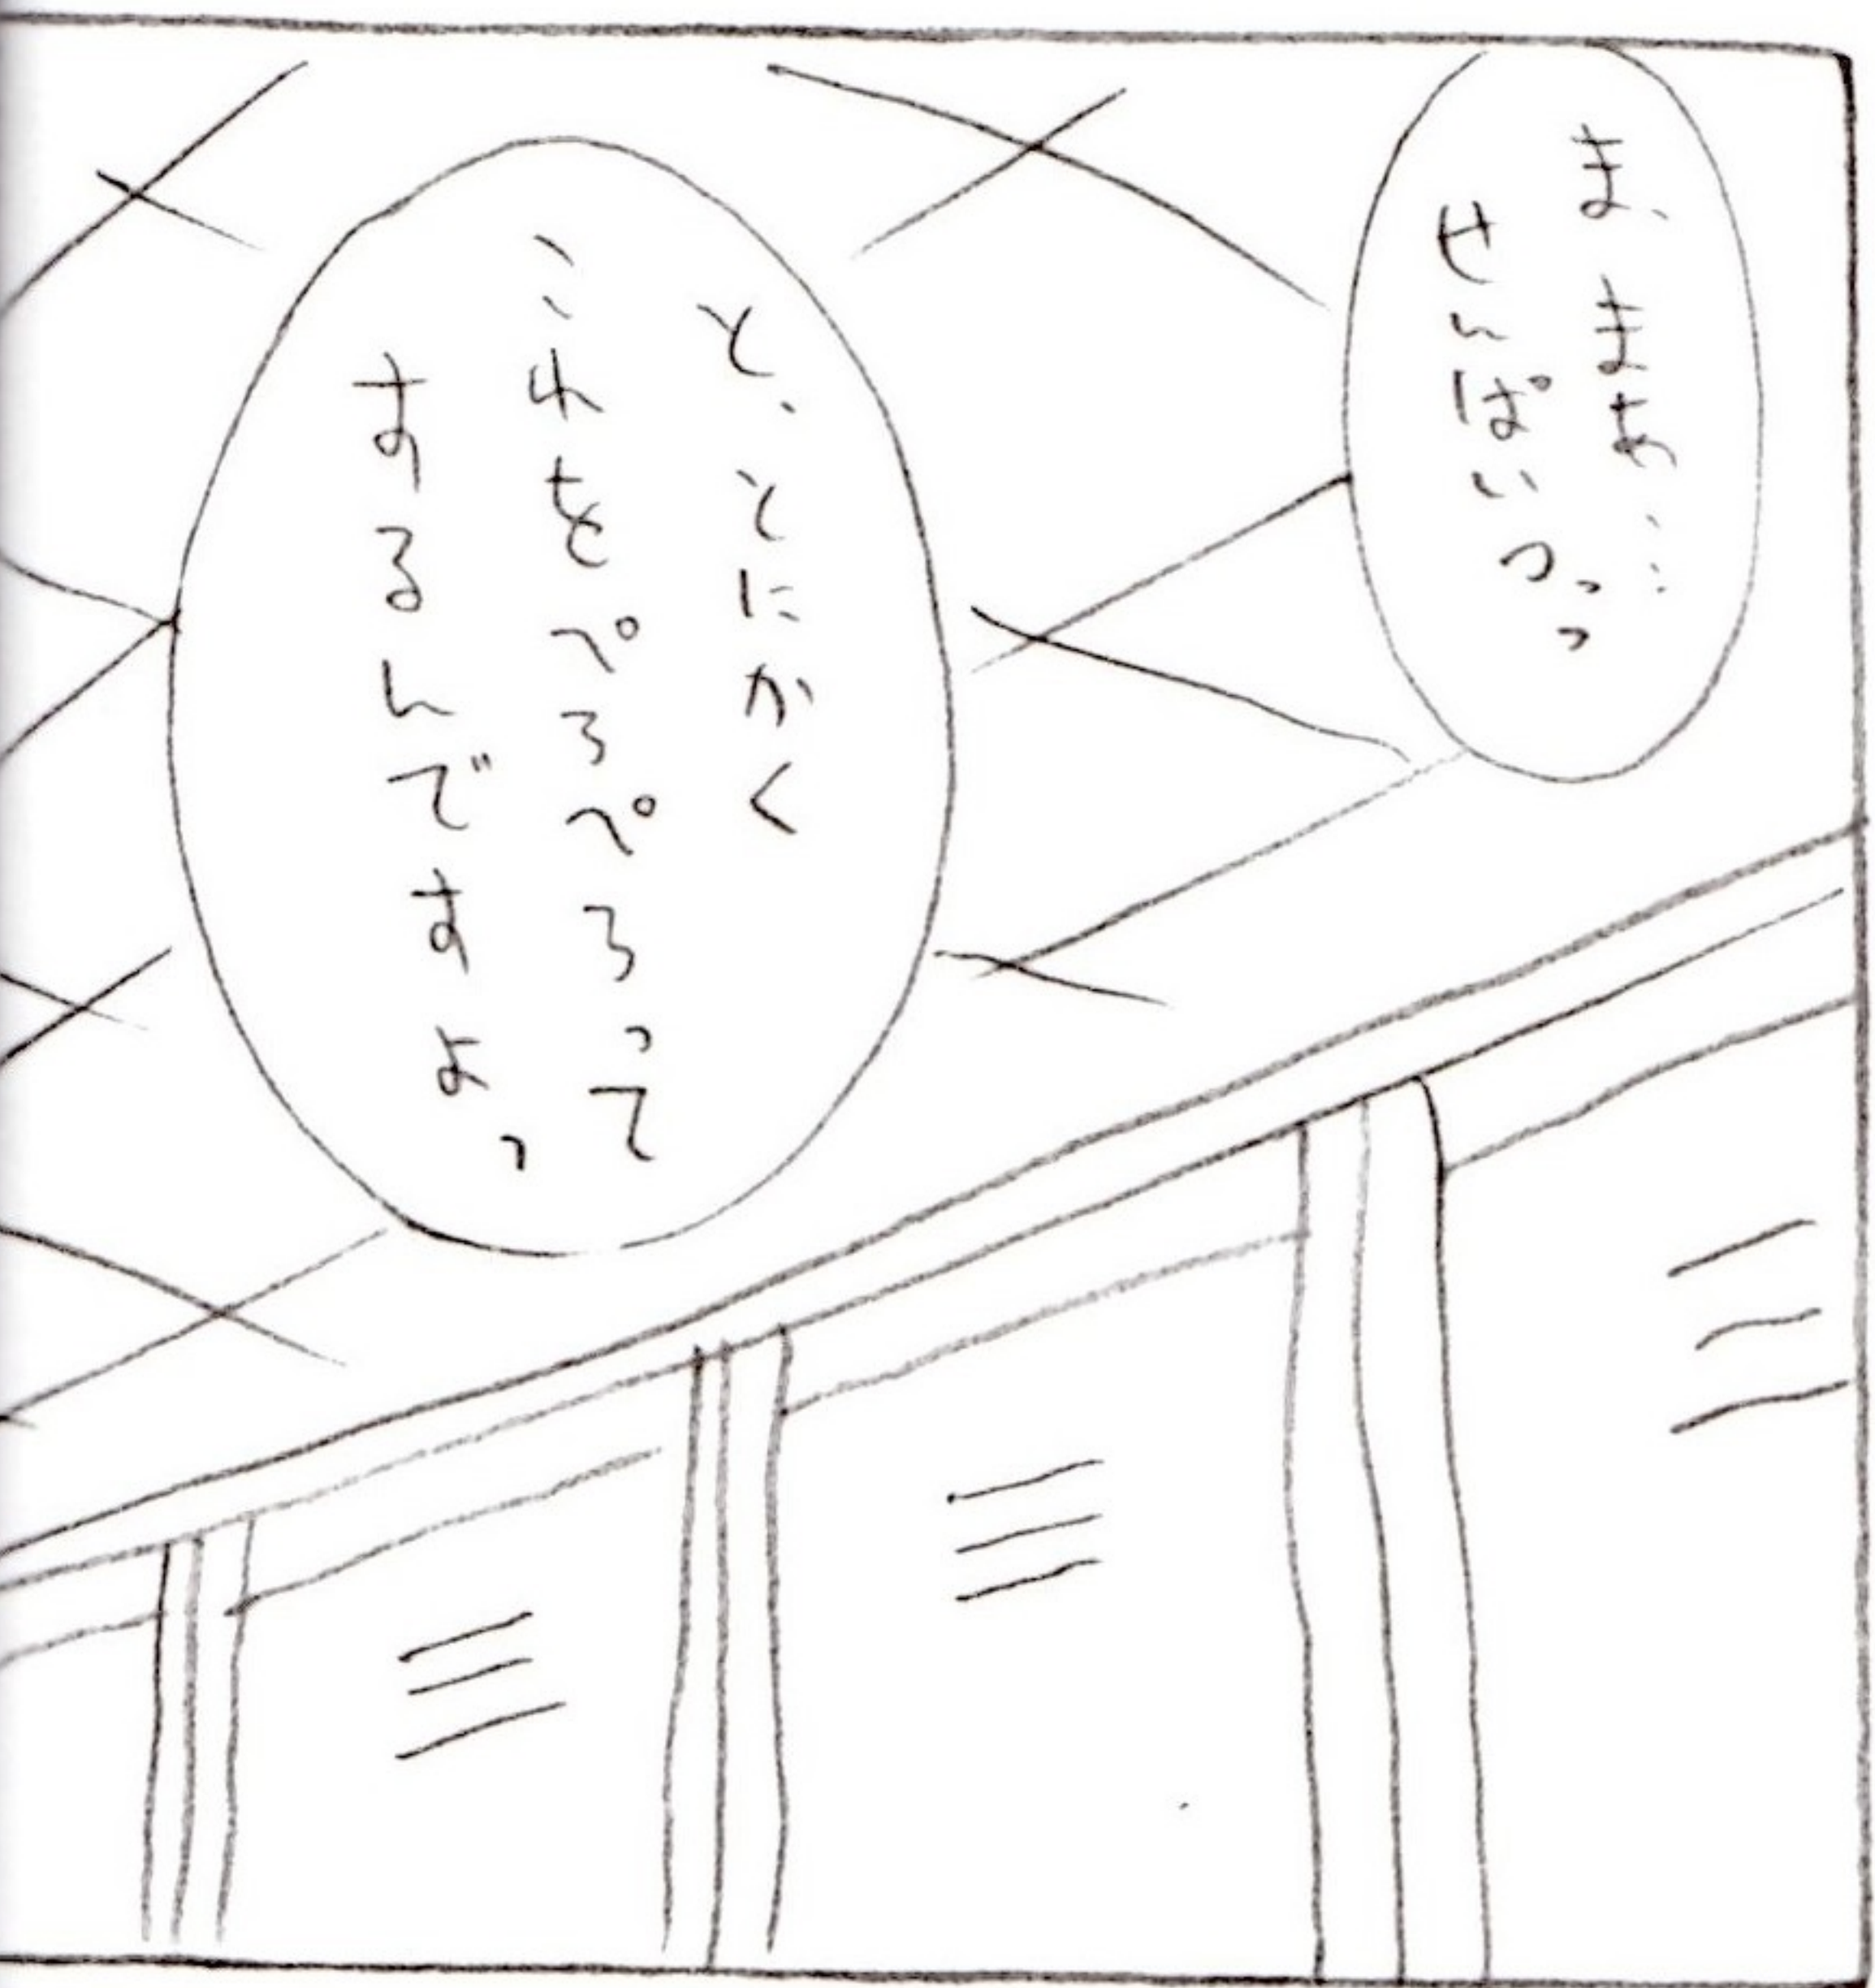 ま、まあ……
せんぱいつっっ
と、とにかく
これをぺろぺろって
するんですよっ